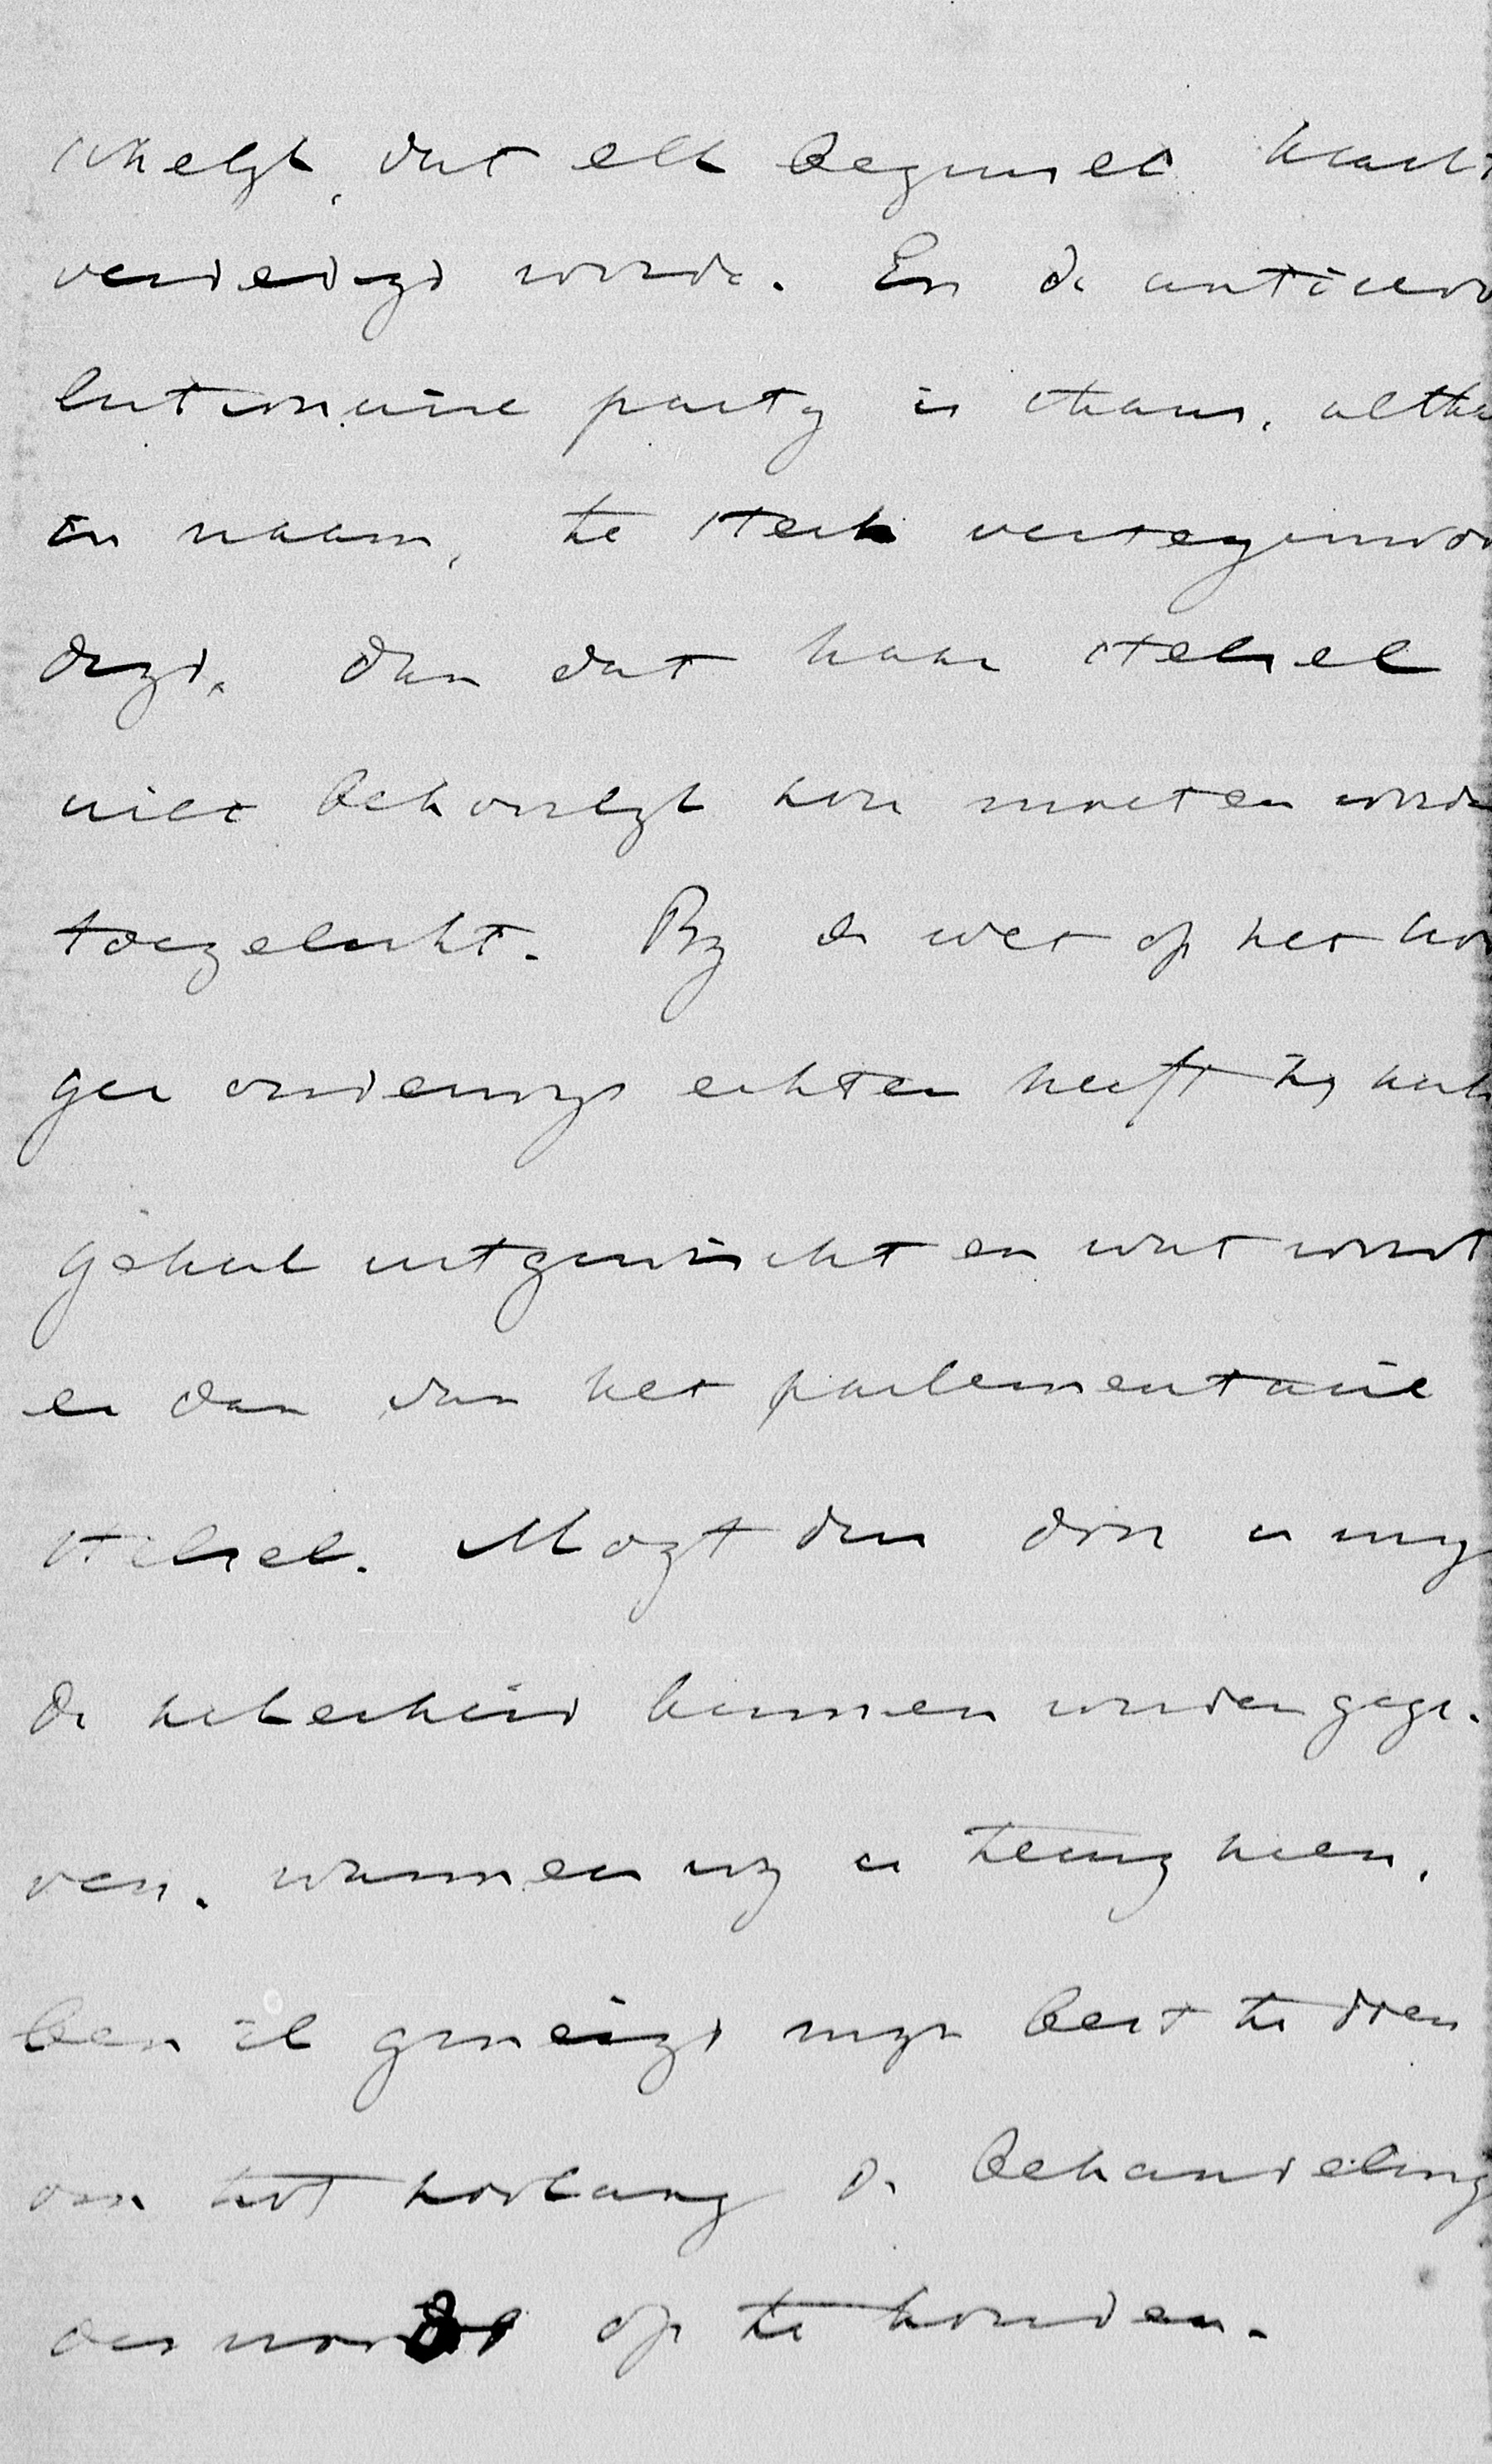 schelyk, dat elk beginsel krach
verdedigd worde. En de antirevo
lutionaire party is thans, altha
in naam, te sterk vertegenwoor
digd, dan dat haar stelsel
niet behoorlyk zou moeten worde
toegelicht. By de wet op het hoo
ger onderwys echter heeft zy zich
geheel uitgewischt en wat wordt
er dan van het parlementaire
stelsel. Mogt dus door u my
de zekerheid kunnen worden gege-
ven, wanneer wy u terug zien,
ben ik geneigd myn best te doen
om tot zoolang de behandeling
desnoods op te houden.